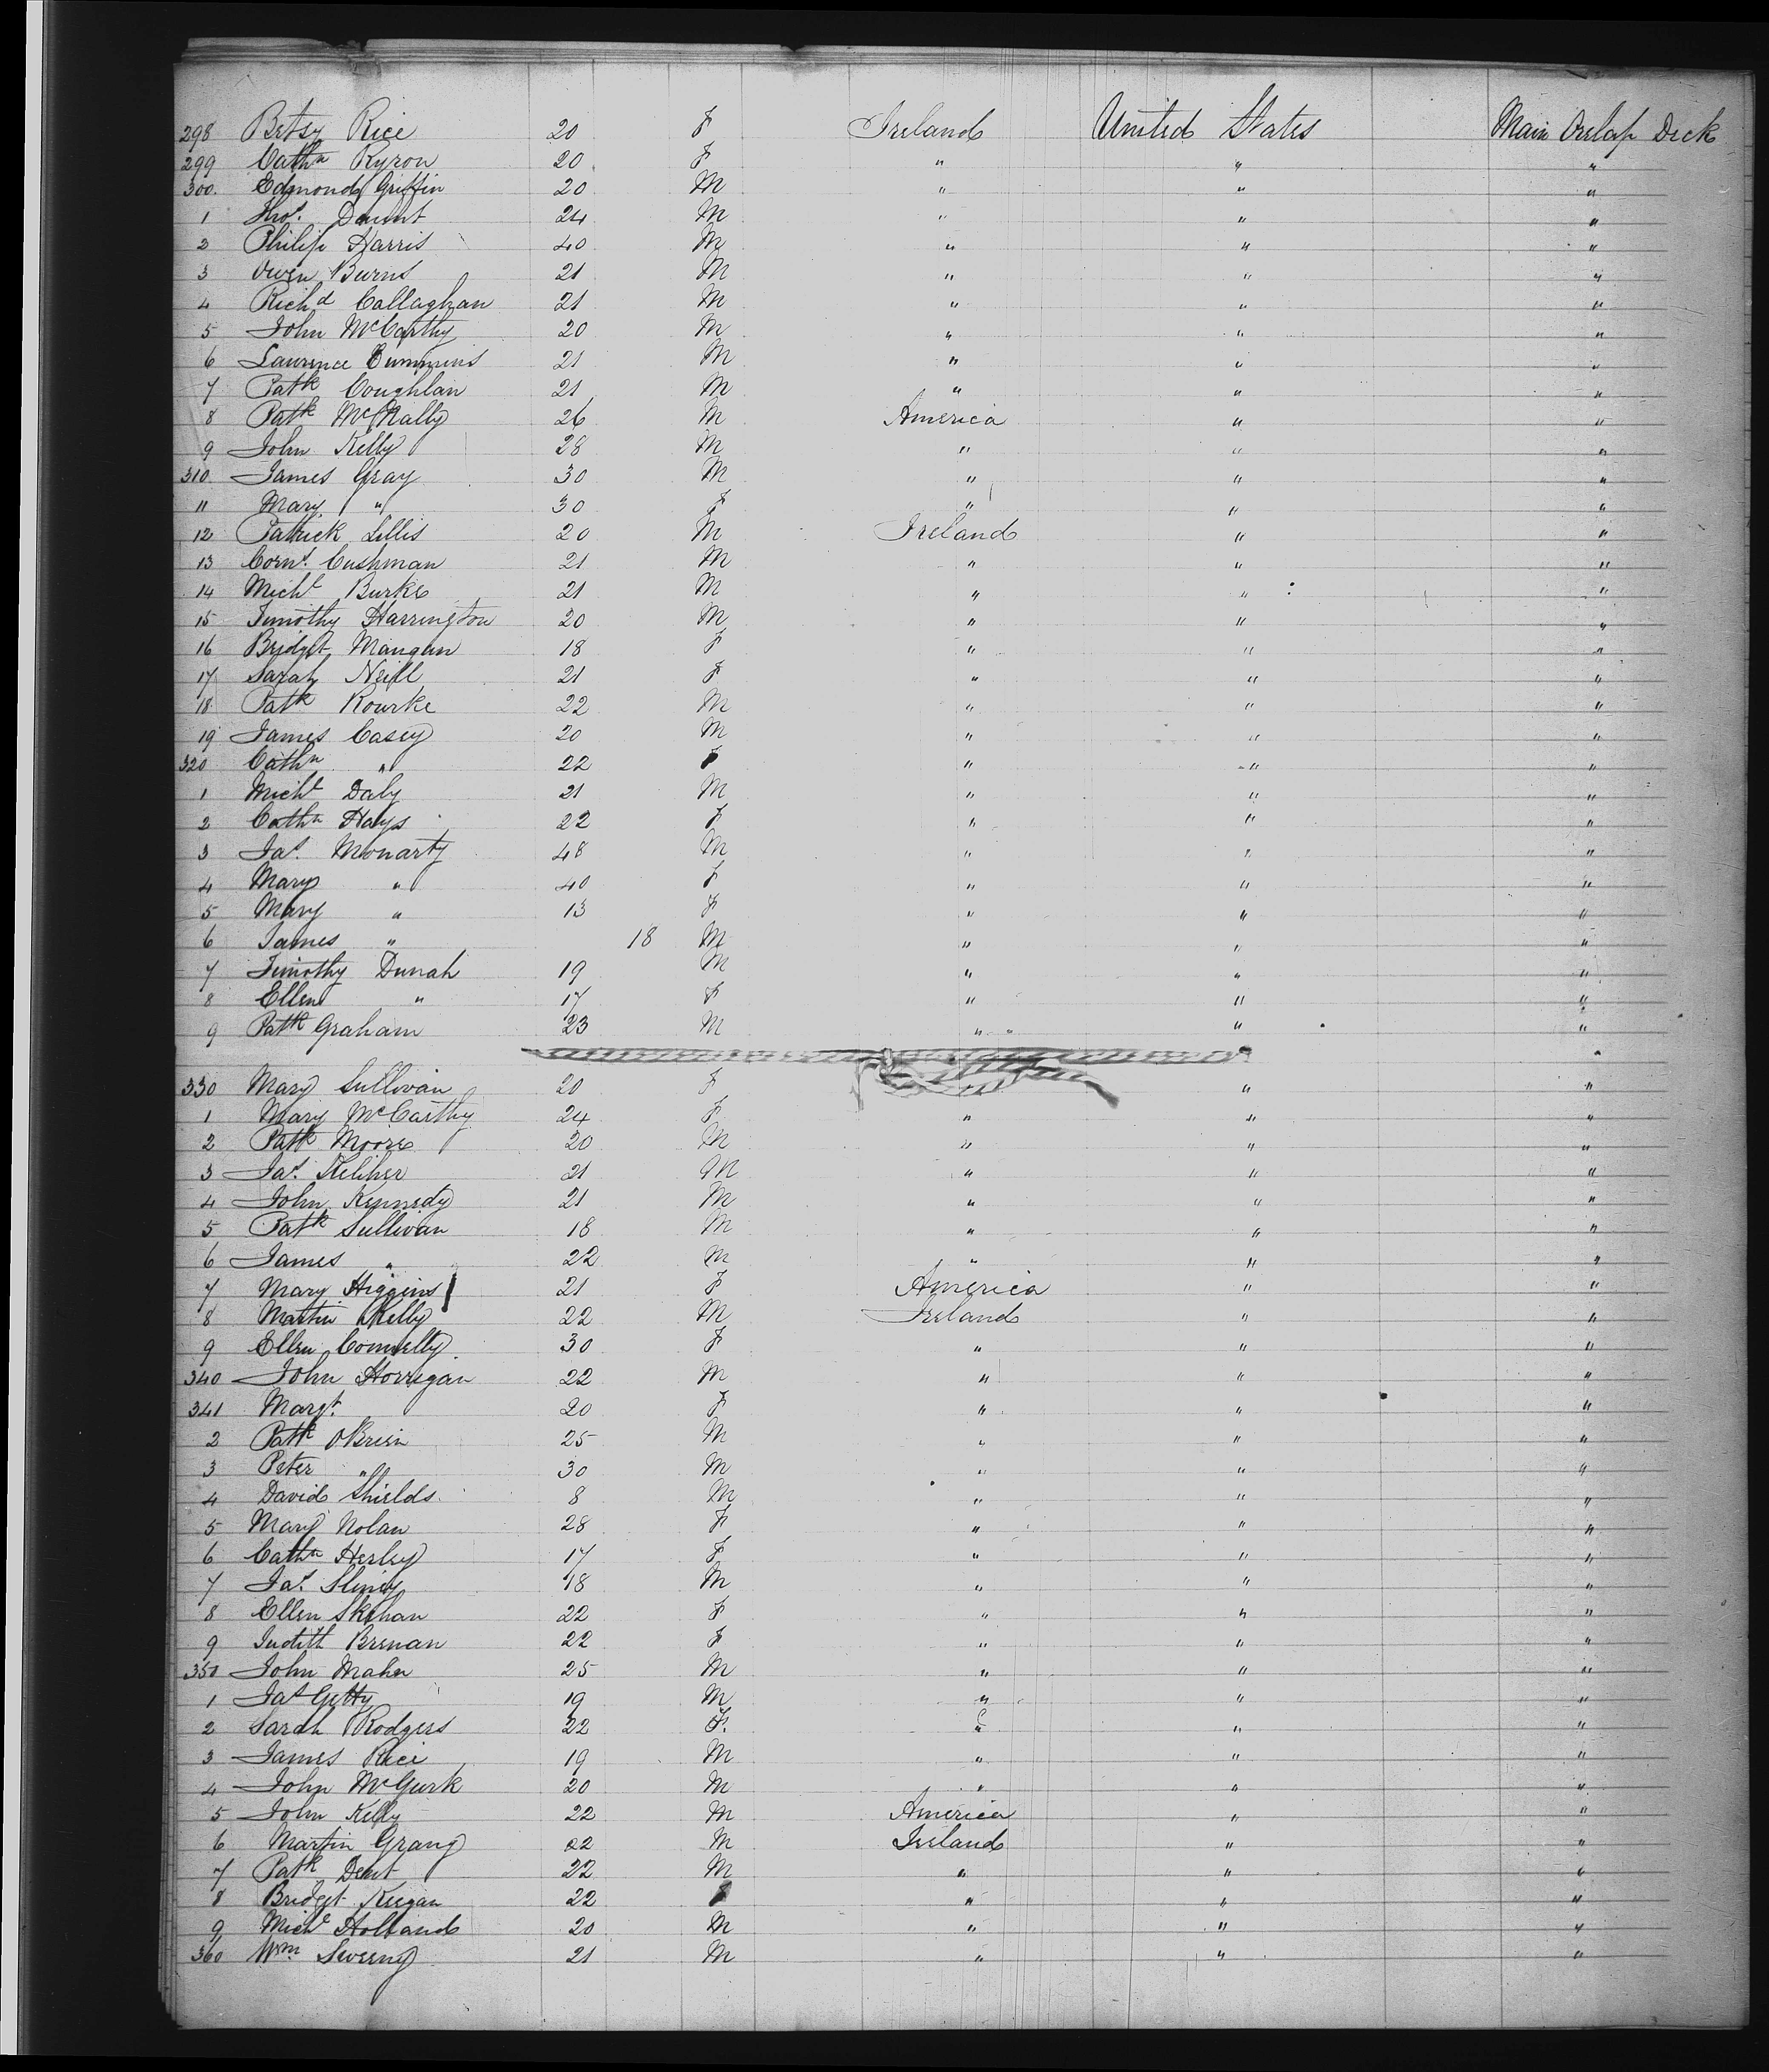 298 Betsy Rice 20 F Ireland United States Main Orelop Deck
299 Cathn Ryron 20 F " " "
300. Edmond Griffin 20 M " " "
1 Thos. Daunt 24 M " " "
2 Philip Harris 40 M " " "
3 Owen Burns 21 M " " "
4 Richd Callaghan 21 M " " "
5 John McCarthy 20 M " " "
6 Lawrence Cummins 21 M " " "
7 Patk Coughlan 21 M " " "
8 Patk McNally 26 M America " "
9 John Kelly 28 M " " "
310 James Gray 30 M " " "
11 Mary " 30 F " " "
12 Patrick Lillis 20 M Ireland " "
13 Corns. Cushman 21 M " " "
14 Michl Burke 21 M " " "
15 Timothy Harrington 20 M " " "
16 Bridget Mangan 18 F " " "
17 Sarah Neill 21 F " " "
18 Patk Rourke 22 M " " "
19 James Casey 20 M " " "
320 Cathn " 22 F " " "
1 Michl Daly 21 M " " "
2 Cathn Hays 22 F " " "
3 Jas. Monarty 48 M " " "
4 Mary " 40 F " " "
5 Mary " 13 F " " "
6 James " 18 M " " "
7 Timothy Dunah 19 M " " "
8 Ellen " 17 F " " "
9 Patk Graham 23 M " " "
330 Mary Sullivan 20 F " "
1 Mary McCarthy 24 F " " "
2 Patk Moore 20 M " " "
3 Jas. Keliher 21 M " " "
4 John Kennedy 21 M " " "
5 Patk Sullivan 18 M " " "
6 James " 22 M " " "
7 Mary Higgins 21 F America " "
8 Martin Kelly 22 M Ireland " "
9 Ellen Connelly 30 F " " "
340 John Horrigan 22 M " " "
341 Margt. 20 F " " "
2 Patk OBrien 25 M " " "
3 Peter " 30 M " " "
4 David Shields 8 M " " "
5 Mary Nolan 28 F " " "
6 Cathn Herley 17 F " " "
7 Jas. Sliney 18 M " " "
8 Ellen Skehan 22 F " " "
9 Judith Brenan 22 F " " "
350 John Maher 25 M " " "
1 Jas Getty 19 M " " "
2 Sarah Rodgers 22 F. " " "
3 James Rice 19 M " " "
4 John McGurk 20 M " " "
5 John Kelly 22 M America " "
6 Martin Grang 22 M Ireland " "
7 Patk Dent 22 M " " "
8 Bridget Keegan 22 F " " "
9 Michl Holland 20 M " " "
360 Wm Sweeny 21 M " " "